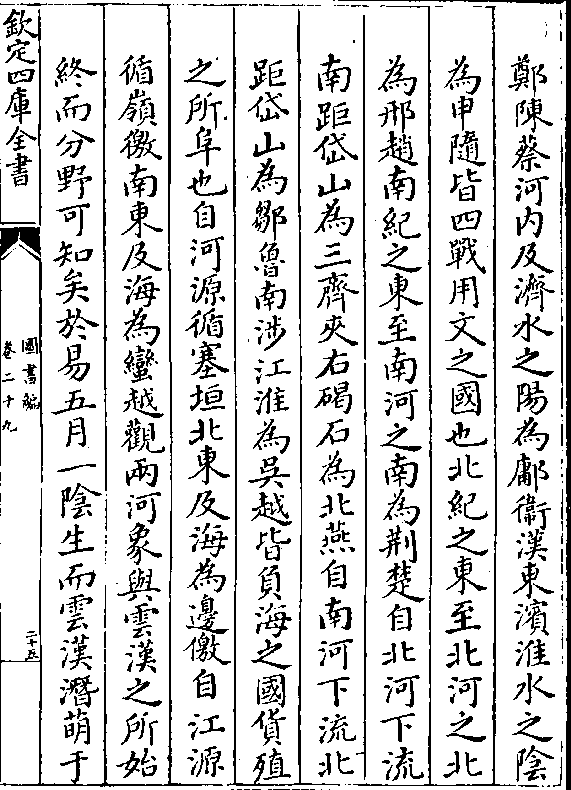 鄭陳蔡河内及濟水之陽為鄘衛漢東濱淮水之陰
為申隨皆四戰用文之國也北紀之東至北河之北
為邢趙南紀之東至南河之南為荆楚自北河下流
南距岱山為三齊夾右碣石為北燕自南河下流北
距岱山為鄒魯南涉江淮為吳越皆負海之國貨殖
之所阜也自河源循塞垣北東及海為邊儌自江源
循嶺徼南東及海為蠻越觀兩河象與雲漢之所始
終而分野可知矣於易五月一陰生而雲漢潛萌于
欽定四庫全書
圖書編
卷二十九
二十五